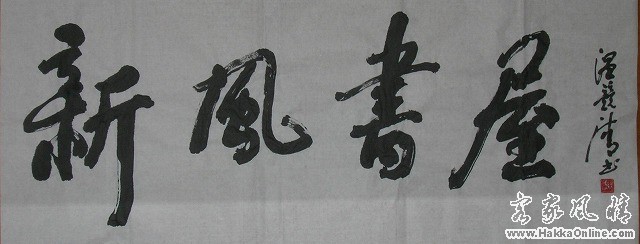 新風書屋
温競濤书
客家風情
www.HakkaOnline.com